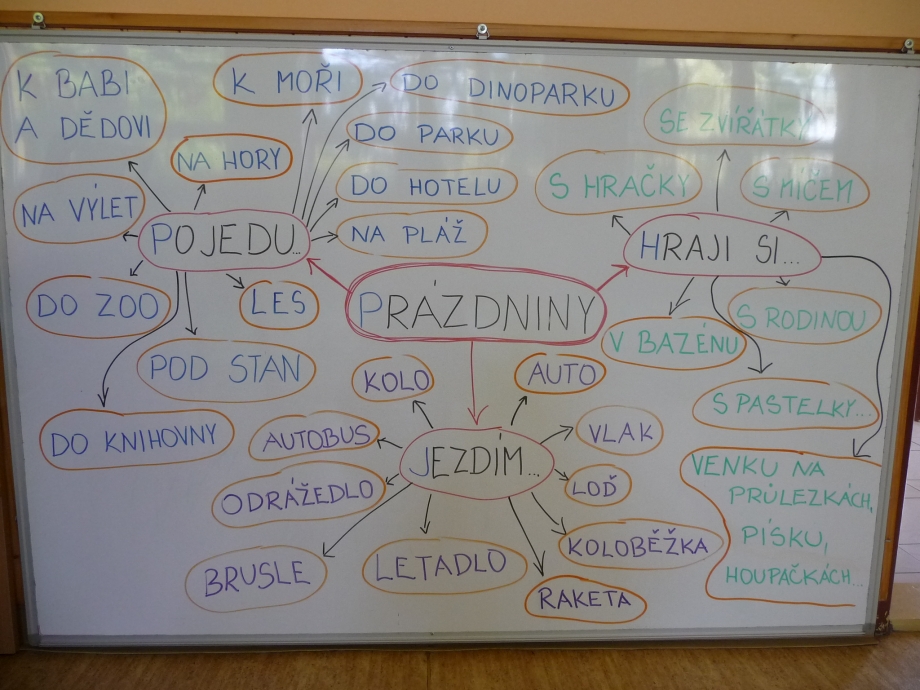 PRÁZDNINY
POJEDU...
K BABI
A DĚDOVI
NA HORY
K MOŘI
DO DINOPARKU
DO PARKU
DO HOTELU
NA PLÁŽ
NA VÝLET
DO ZOO
LES
POD STAN
DO KNIHOVNY
HRAJI SI...
SE ZVÍŘÁTKY
S HRAČKY
S MÍČEM
S RODINOU
V BAZÉNU
S PASTELKY...
VENKU NA
PRŮLEZKÁCH,
PÍSKU,
HOUPAČKÁCH...
JEZDÍM...
KOLO
AUTO
AUTOBUS
VLAK
ODRÁŽEDLO
LOĎ
BRUSLE
LETADLO
KOLOBĚŽKA
RAKETA